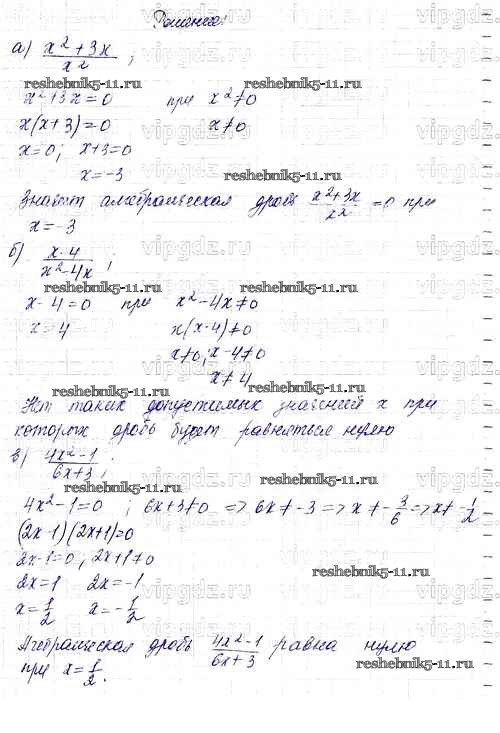 Решение:
а) x²+3x / x² ;
reshebnik5-11.ru reshebnik5-11.ru
x²+3x=0 при x²≠0
x(x+3)=0 x≠0
x=0; x+3=0
x=-3
reshebnik5-11.ru
Значит алгебраическая дробь x²+3x / x² =0 при
x=-3
б) x-4 / x²-4x ;
reshebnik5-11.ru reshebnik5-11.ru
x-4=0 при x²-4x≠0
x=4 x(x-4)≠0
x≠0; x-4≠0
x≠4
reshebnik5-11.ru
Нет таких допустимых значений x при
которых дробь будет равняться нулю
в) 4x²-1 / 6x+3 ;
reshebnik5-11.ru reshebnik5-11.ru
4x²-1=0 ; 6x+3≠0 => 6x≠-3 => x≠-3/6 => x≠-1/2
(2x-1)(2x+1)=0
2x-1=0; 2x+1≠0
reshebnik5-11.ru
2x=1 2x=-1
x=1/2 x=-1/2
Алгебраическая дробь 4x²-1 / 6x+3 равна нулю
reshebnik5-11.ru
при x=1/2.